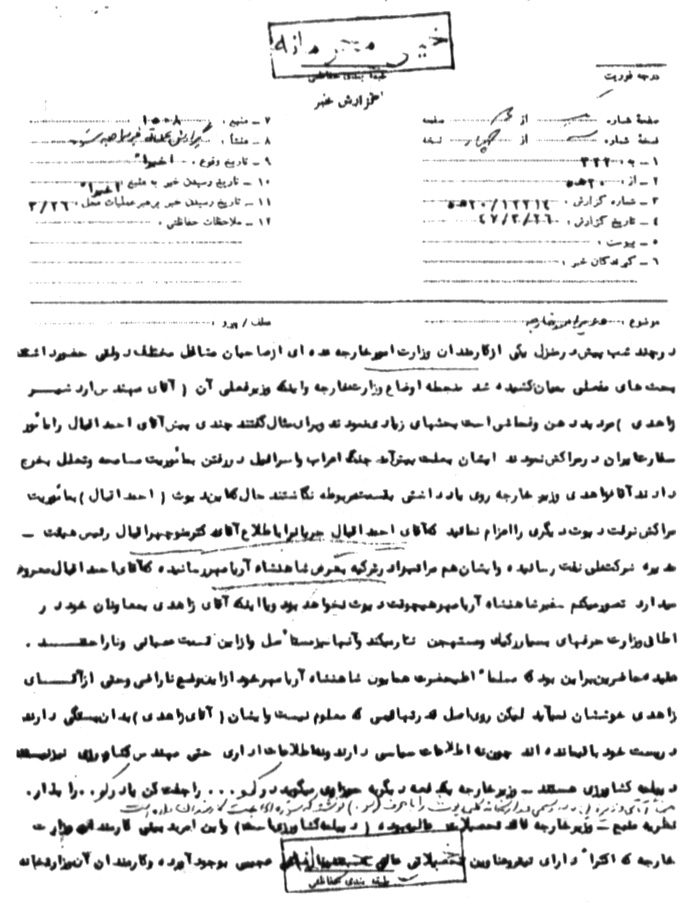 خیلی محرمانه
طبقه بندی حفاظتی
گزارش خبر
درجه فوریت
صفحه شماره از صفحه
نسخه شماره از چهار نسخه
۱ ـ به : ۳۲۲
۲ ـ از : ۲۰ هـ ۵
۳ ـ شماره گزارش : ۲۰/۱۲۲۱۴ هـ ۵
۴ ـ تاریخ گزارش : ۴۷/۳/۲۶
۵ ـ پیوست :
۶ ـ گیرندگان خبر :
۷ ـ منبع : ۱۵۰۰۸
۸ ـ منشأ :
۹ ـ تاریخ وقوع : اخیرا"
۱۰ ـ تاریخ رسیدن خبر به منبع : اخیرا"
۱۱ ـ تاریخ رسیدن خبر برهبر عملیات محل : ۳/۲۶
۱۲ ـ ملاحظات حفاظتی :
موضوع : وزیر امور خارجه
عطف / پیرو :
در چند شب پیش در منزل یکی از کارمندان وزارت امور خارجه عده ای از صاحبان مشاغل مختلف دولتی حضور داشتند
بحث های مفصلی بمیان کشیده شد منجمله اوضاع وزارتخارجه و اینکه وزیر فعلی آن ( آقای مهندس اردشیر
زاهدی ) مرد بد دهن و فحاشی است بحثهای زیادی نمودند و برای مثال گفتند چندی پیش آقای احمد اقبال را مأمور
سفارت ایران در مراکش نمودند ایشان بعلت پیش آمد جنگ اعراب و اسرائیل در رفتن بمأموریت مسامحه و تعلل بخرج
دادند آقای زاهدی وزیر خارجه روی یادداشتی بقسمت مربوطه نگاشتند حال که این دیوث ( احمد اقبال ) بمأموریت
مراکش نرفت دیوث دیگری را اعزام نمائید که آقای احمد اقبال جریان را باطلاع آقای دکتر منوچهر اقبال رئیس هیئت ـ
مدیره شرکت ملی نفت رسانیده و ایشان هم مراتب را در ترکیه بعرض شاهنشاه آریامهر رسانیده که آقای احمد اقبال معروض
میدارد تصور میکنم سفیر شاهنشاه آریامهر هیچوقت دیوث نخواهد بود و یا اینکه آقای زاهدی بمعاونان خود در
اطاق وزارت حرفهای بسیار رکیک و مستهجن نثار میکند و آنها نیز مستأصل و از این قسمت عصبانی و ناراحتند .
عقیده حاضرین براین بود که مسلما" اعلیحضرت همایون شاهنشاه آریامهر خود از این وضع ناراضی و حتی از آقای
زاهدی خوششان نمیآید لیکن روی اصل قدرتهائی که معلوم نیست و ایشان ( آقای زاهدی ) بدان بستگی دارند
در پست خود باقیمانده اند چون نه اطلاعات سیاسی دارند و نه اطلاعات اداری حتی مهندس کشاورزی نیز نیستند
دیپلمه کشاورزی هستند ـ وزیر خارجه یکدفعه دیگر به میگوید دو . . . را جفت کن یا در . . را بذار.
نظریه منبع ـ وزیر خارجه فاقد تحصیلات عالیه بوده ( دیپلمه کشاورزی است ) و این امر بدبینی کارمندان وزارت
خارجه که اکثرا" دارای تحصیلاتی عالی عجیبی بوجود آورده و کارمندان آن وزارتخانه
خیلی محرمانه
طبقه بندی حفاظتی